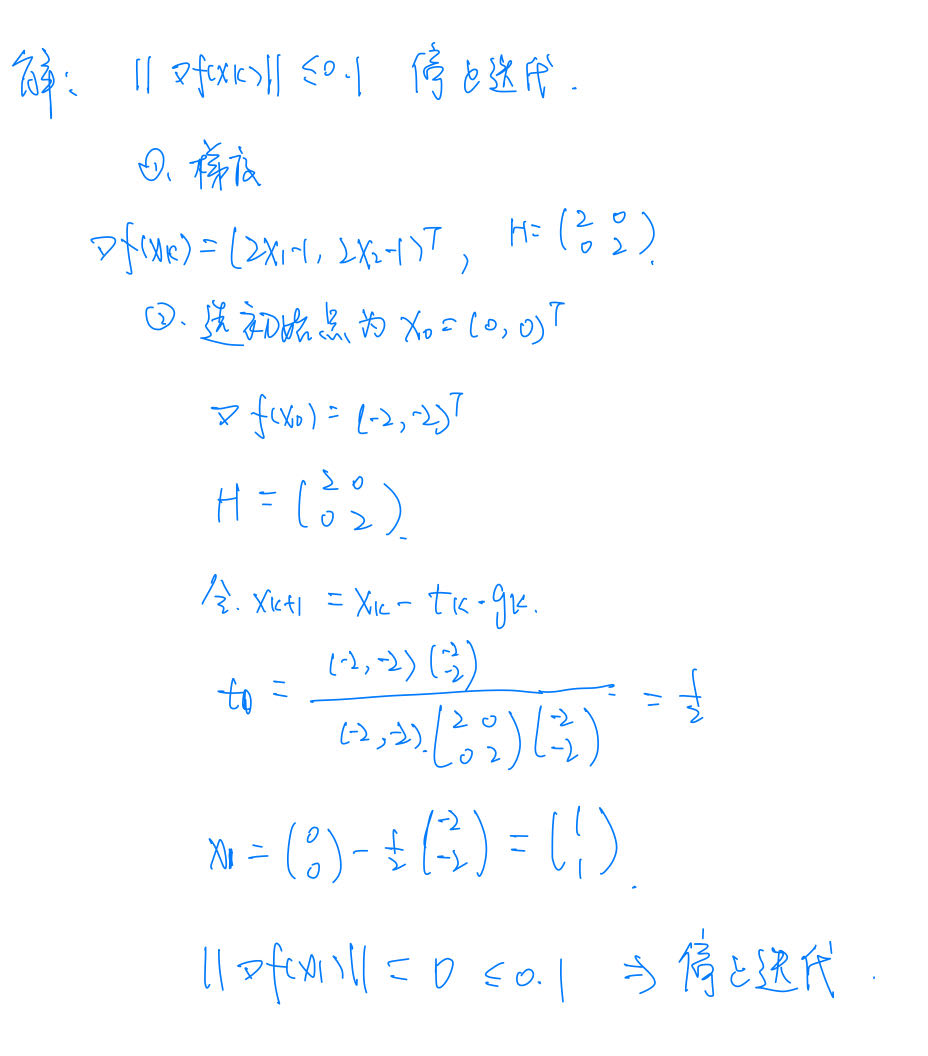 解: ||∇f(xk)|| ≤0.1 停止迭代.
①. 梯度
∇f(xk)=(2x1-1, 2x2-1)ᵀ, H=(2 0; 0 2).
②. 选初始点为 x0=(0,0)ᵀ
∇f(x0)=(-2,-2)ᵀ
H=(2 0; 0 2).
令. xk+1 = xk - tk·gk.
t0 = (-2,-2)(-2; -2) / (-2,-2).(2 0; 0 2)(-2; -2) = 1/2
x1=(0; 0)-1/2(-2; -2)=(1; 1).
||∇f(x1)||=0 ≤0.1 ⇒ 停止迭代.